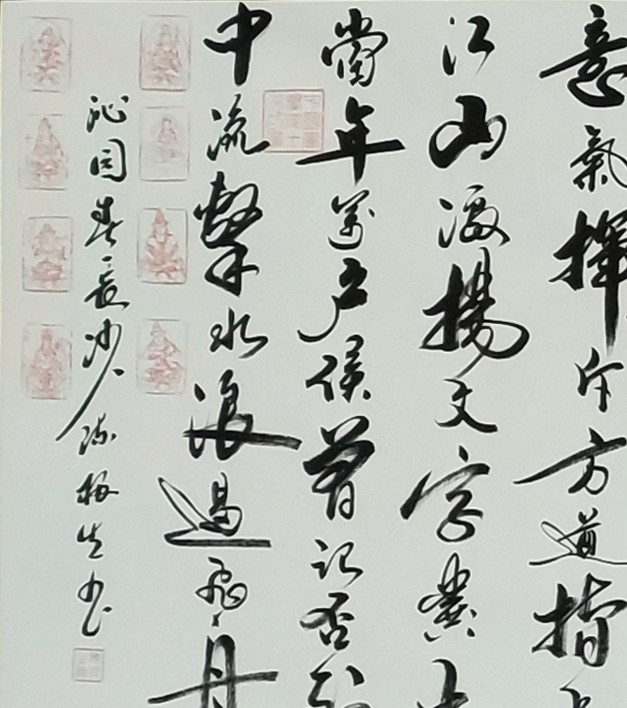 意氣揮斥方遒指
江山激揚文字糞土
當年萬戶侯曾記否到
中流擊水浪遏飛舟
沁园春長沙陈梅生书